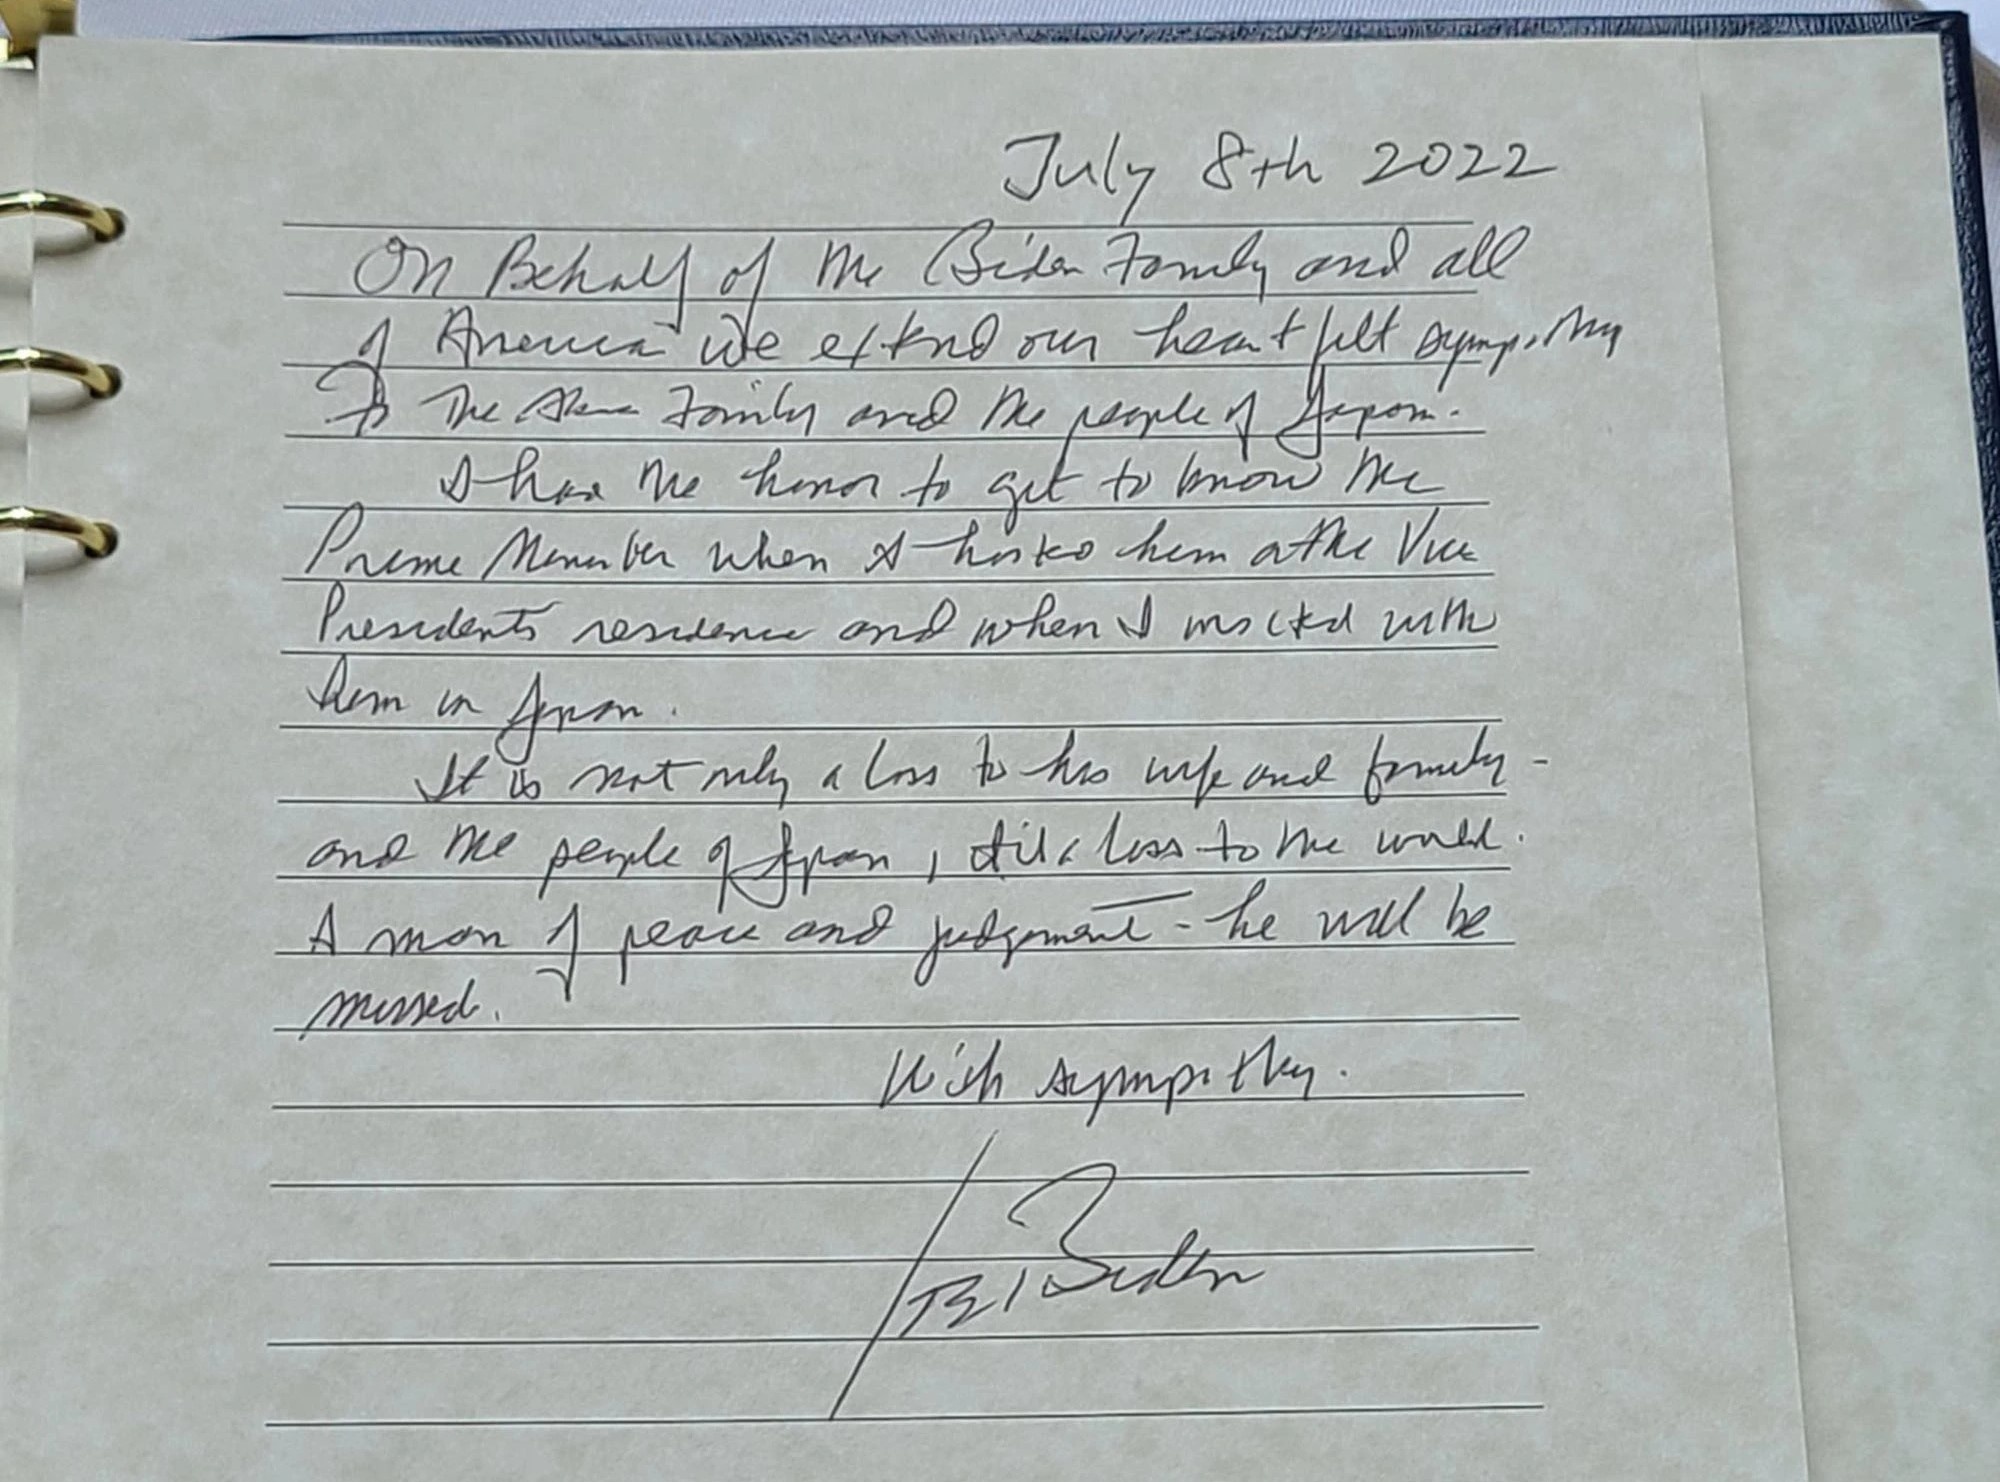 July 8th 2022
On Behalf of the Biden Family and all
of America we extend our heartfelt sympathy
To The Abe Family and the people of Japan.
I had the honor to get to know the
Prime Minister when I hosted him at the Vice
Presidents residence and when I visited with
him in Japan.
It is not only a loss to his wife and family -
and the people of Japan, it's a loss to the world.
A man of peace and judgement - he will be
missed.
With sympathy.
Biden